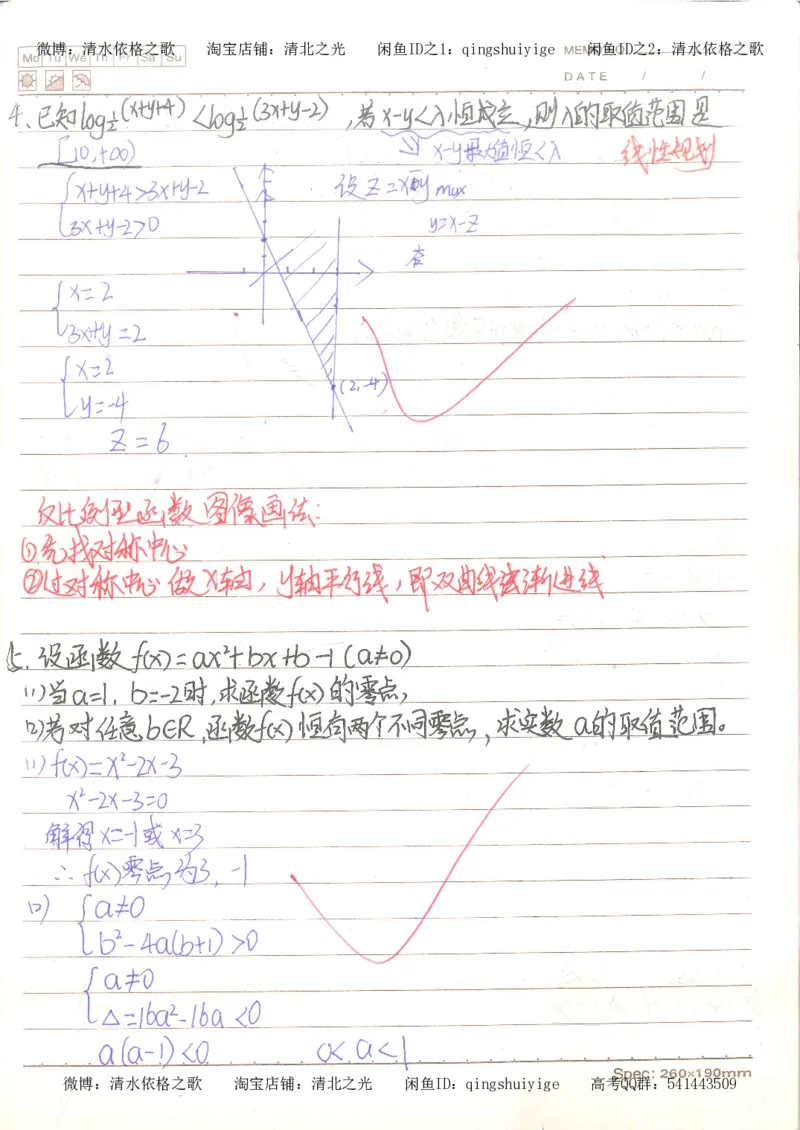 微博：清水依格之歌 淘宝店铺：清北之光 闲鱼ID之1：qingshuiyige 闲鱼ID之2：清水依格之歌
Mo Tu We Th Fr Sa Su
DATE / /
4、已知log½(x+y+4)<log½(3x+y-2)，若x-y<λ恒成立，则λ的取值范围是
[10,+∞) x-y最大值恒<λ 线性规划
{x+y+4>3x+y-2 设Z=x-y max
3x+y-2>0 y=x-Z
{x=2
3x+y=2
{x=2 (2,-4)
y=-4
Z=6
反比例型函数图像画法：
①先找对称中心
②过对称中心做x轴，y轴平行线，即双曲线渐进线
5.设函数f(x)=ax²+bx+b-1(a≠0)
(1)当a=1，b=-2时，求函数f(x)的零点，
(2)若对任意b∈R，函数f(x)恒有两个不同零点，求实数a的取值范围。
(1)f(x)=x²-2x-3
x²-2x-3=0
解得x=-1或x=3
∴f(x)零点为3，-1
(2) {a≠0
b²-4a(b+1)>0
{a≠0
Δ=16a²-16a<0
a(a-1)<0 0<a<1
Spec: 260×190mm
微博：清水依格之歌 淘宝店铺：清北之光 闲鱼ID：qingshuiyige 高考QQ群：541443509